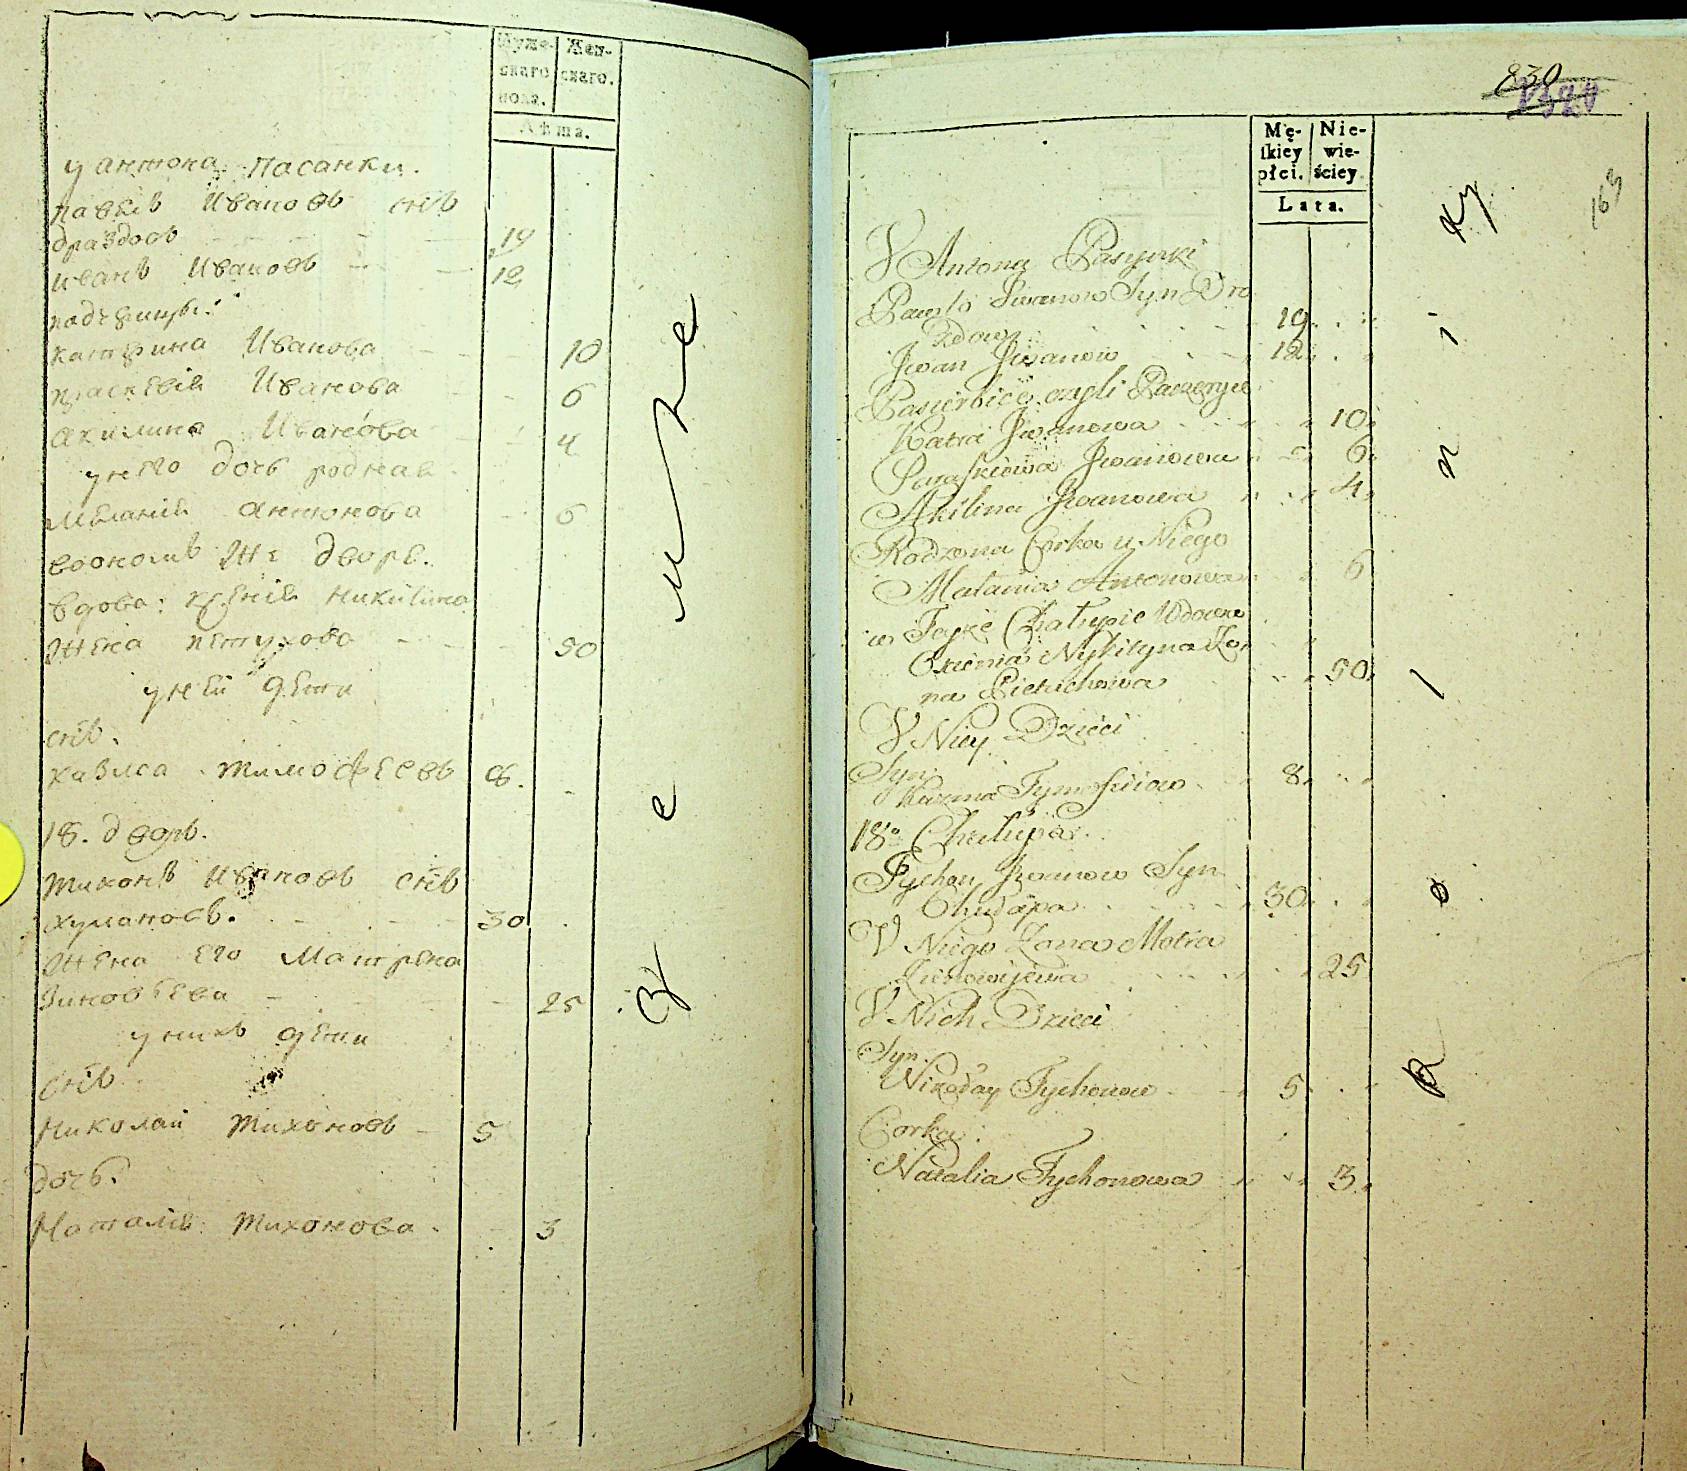 Муже-
скаго
пола.
Жен-
скаго.
Лѣта.
у антона пасанки.
павелъ Ивановъ снъ
драздовъ 19
иванъ Ивановъ 12
падчерицы:
катрина Иванова 10
прасковія Иванова 6
акилина Иванова 4
у него дочь родная
Меланія антонова 6
воономъ же дворѣ.
вдова: ксенія никитина
жена петухова 50
у ней дети
снъ.
казма тимофеевъ 8.
18. дворъ.
тихонъ Ивановъ снъ
30
жена его Матрена
Зиновеева 25
у нихъ дети
снъ
николай тихоновъ 5
дочь.
Наталія тихонова. 3
830
163
Mę-
skiey
płci.
Nie-
wie-
ściey
Lata.
V Antona Pasynki
Pawło Jwanow Syn Dro
zdow 19
Jwan Jwanow 12
Pasierbice czyli Paczeryce
Katra Jwanowa 10
Paraskiewia Jwanowna 6
Akilina Jwanowa 4
Rodzona Corka u Niego
Małania Antonowa 6
w Teyże Chałupie Wdowa
Oxienia Nykityna Żo
na Pietuchowa 50
V Niey Dzieci
Syn
Kuzma Tymofiiow 8
18o Chałupa.
Tychon Jwanow Syn
30
V Niego Żona Motra
Zienowijewa 25
V Nich Dzieci
Syn.
Nikołay Tychonow 5
Corka:
Natalia Tychonowa 3